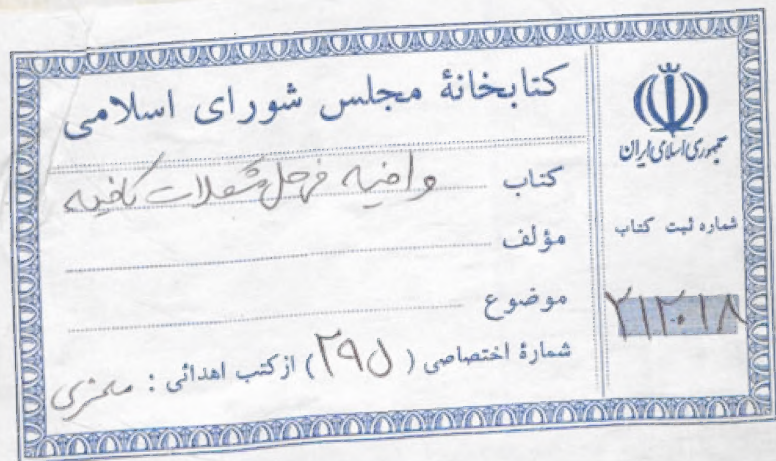 کتابخانهٔ مجلس شورای اسلامی
کتاب وافیه فی حل مشکلات کافیه
مؤلف
موضوع
شمارهٔ اختصاصی (۲۹۵) از کتب اهدائی :
جمهوری اسلامی ایران
شماره ثبت کتاب
۲۱۲۰۱۸